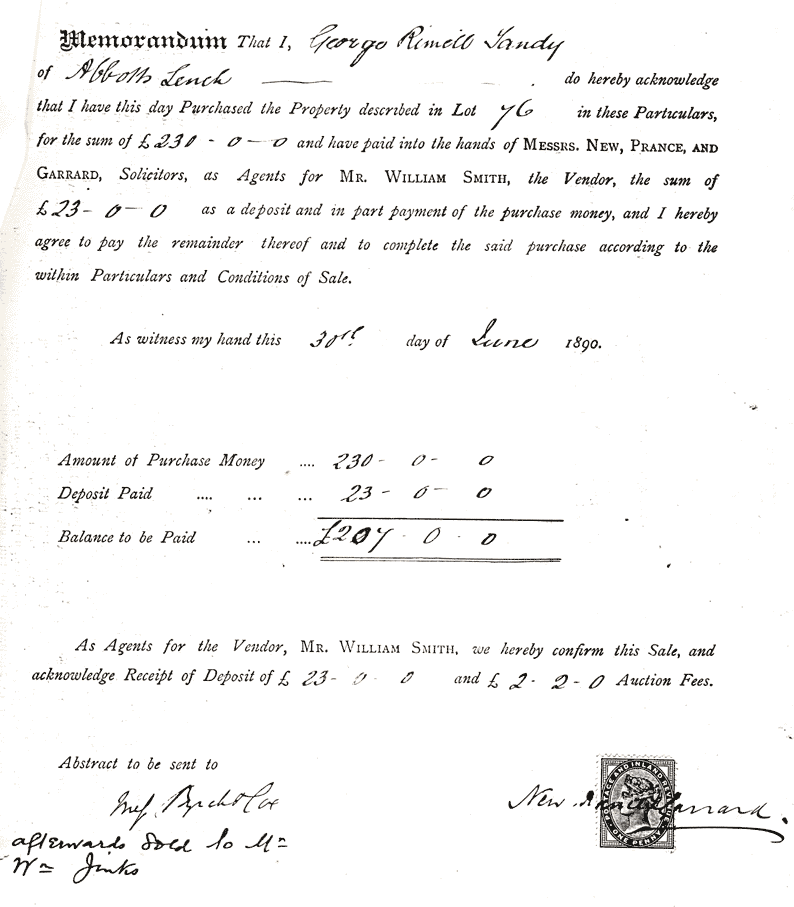 Memorandum That I, George Rimell Tandy
of Abbotts Lench do hereby acknowledge
that I have this day Purchased the Property described in Lot 76 in these Particulars,
for the sum of £230-0-0 and have paid into the hands of MESSRS. NEW, PRANCE, AND
GARRARD, Solicitors, as Agents for MR. WILLIAM SMITH, the Vendor, the sum of
£23-0-0 as a deposit and in part payment of the purchase money, and I hereby
agree to pay the remainder thereof and to complete the said purchase according to the
within Particulars and Conditions of Sale.
As witness my hand this 30th day of June 1890.
Amount of Purchase Money .... 230-0-0
Deposit Paid .... ... ... 23-0-0
Balance to be Paid ... ....£207-0-0
As Agents for the Vendor, MR. WILLIAM SMITH, we hereby confirm this Sale, and
acknowledge Receipt of Deposit of £ 23-0-0 and £ 2-2-0 Auction Fees.
Abstract to be sent to
POSTAGE AND INLAND REVENUE
New Prance & Garrard.
ONE PENNY
Byrch & Cox
afterwards sold to Mr
Wm Jinks